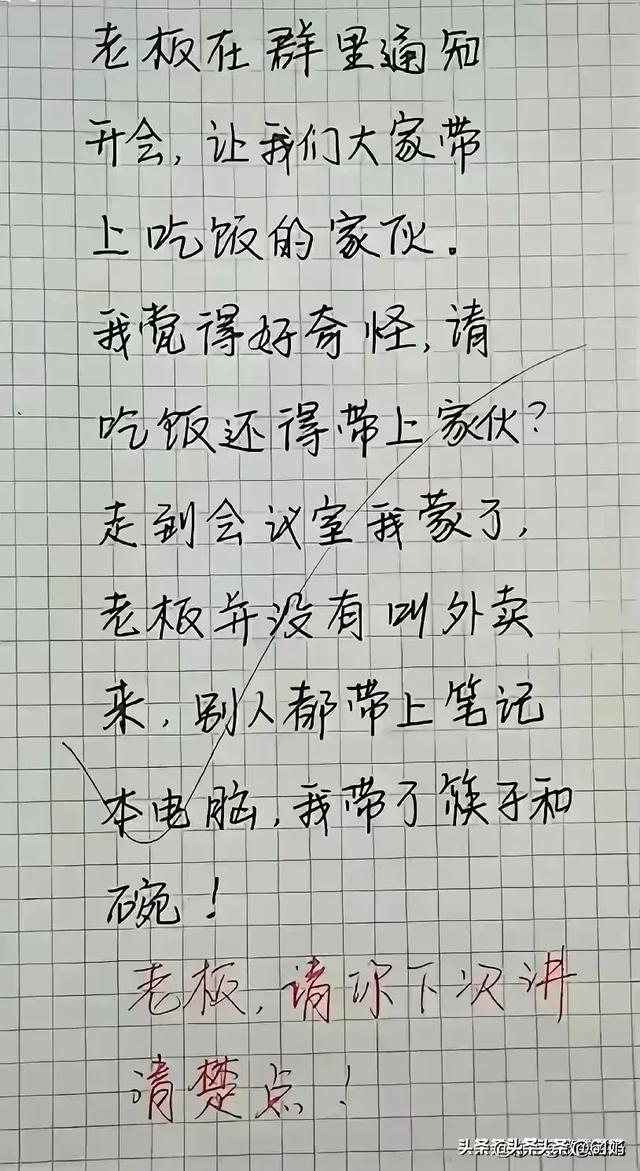 老板在群里通知
开会，让我们大家带
上吃饭的家伙。
我觉得好奇怪，请
吃饭还得带上家伙？
走到会议室我蒙了，
老板并没有叫外卖
来，别人都带上笔记
本电脑，我带了筷子和
碗！
老板，请你下次讲
清楚点！